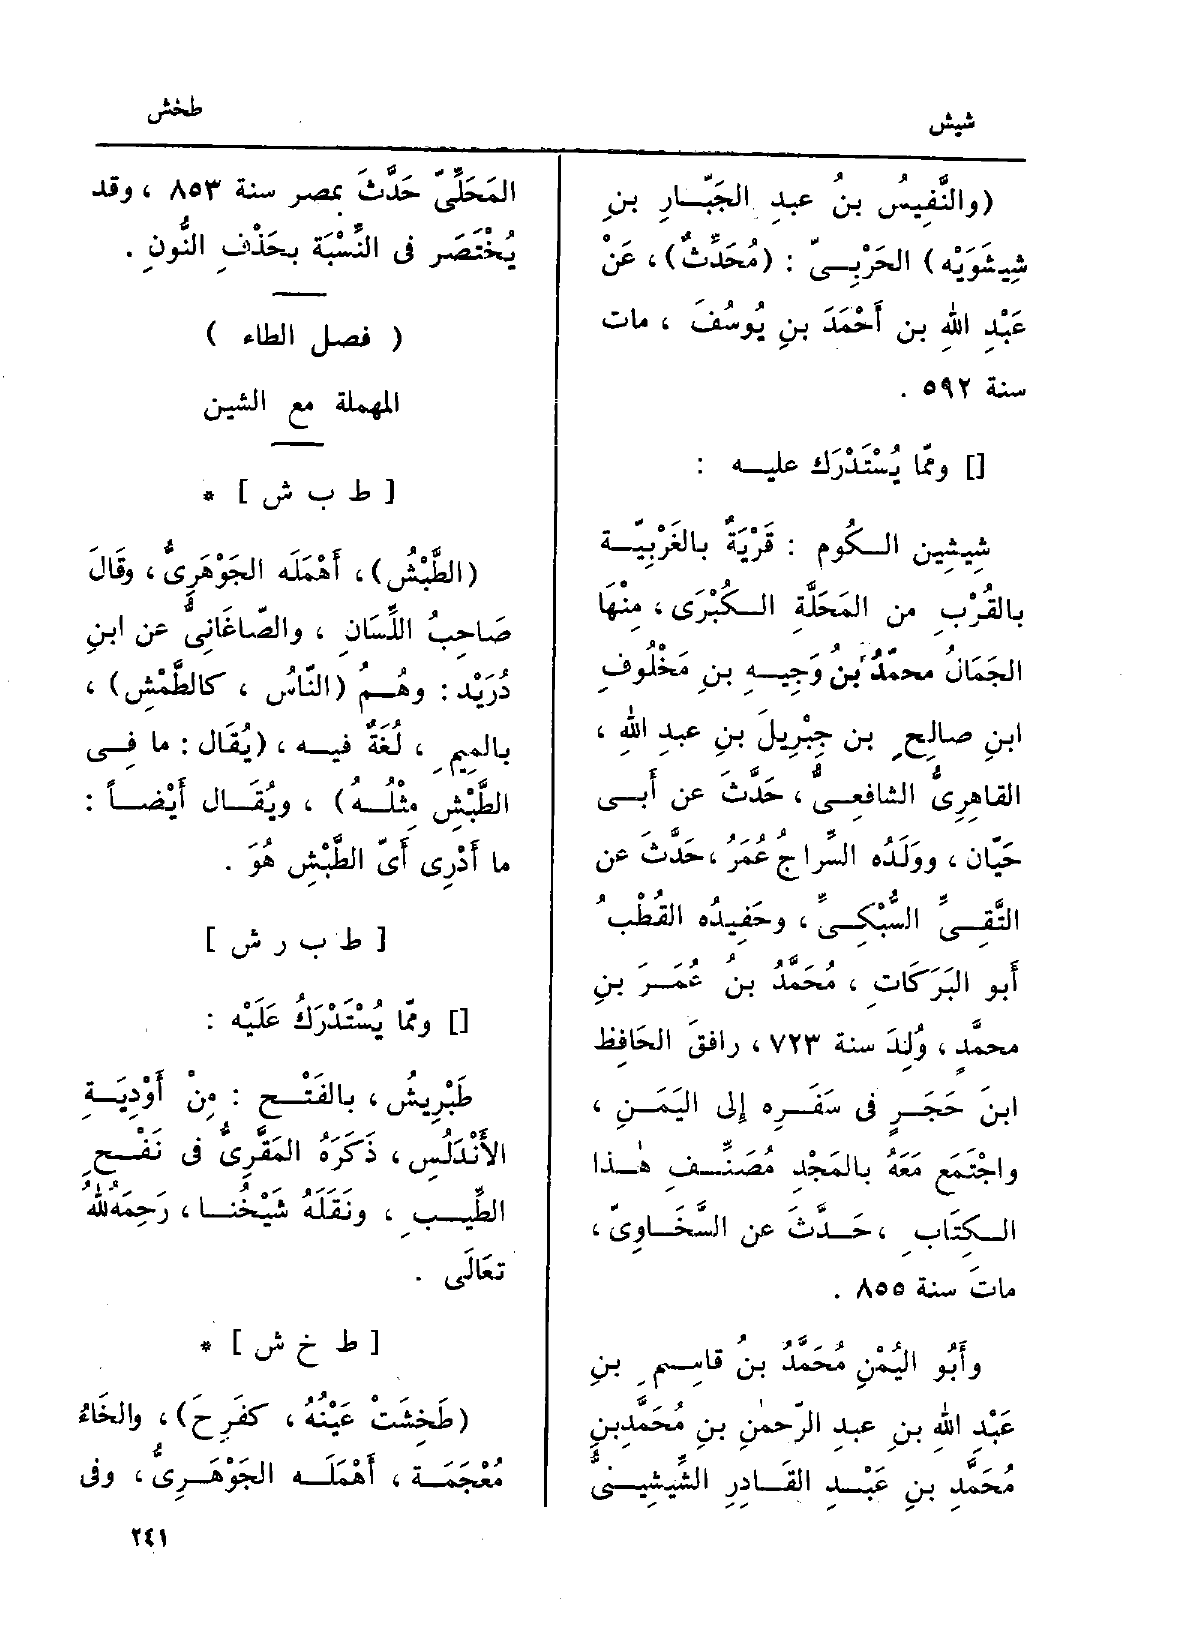 شيش
طخش
(والنَّفِيسُ بنُ عبدِ الجَبّارِ بنِ
شِيشَوَيْه) الحَرْبِىّ : (مُحَدِّثٌ)، عَنْ
عَبْدِ اللهِ بن أَحْمَدَ بنِ يُوسُفَ ، مات
سنة ٥٩٢ .
[] وممّا يُسْتَدْرَك عليه :
شِيشِين الكُوم : قَرْيَةٌ بالغَرْبِيّة
بالقُرْبِ من المَحَلَّةِ الكُبْرَى، مِنْهَا
الجَمَالُ محمّدُ بنُ وَجِيهِ بنِ مَخْلُوفِ
ابنِ صالِحِ بن جِبْرِيلَ بنِ عبدِ اللهِ ،
القاهِرِىُّ الشافعىُّ، حَدَّثَ عن أَبى
حَيّان ، ووَلَدُه السِّراجُ عُمَرُ ، حَدَّثَ عن
التَّقِىِّ السُّبْكِىِّ، وحَفِيدُه القُطْبُ
أَبو البَرَكَاتِ ، مُحَمَّدُ بنُ عُمَرَ بنِ
محمَّدٍ ، وُلِدَ سنة ٧٢٣ ، رافقَ الحَافِظ
ابنَ حَجَرٍ فى سَفَرِه إِلى اليَمَنِ ،
واجْتَمَع مَعَهُ بالمَجْدِ مُصَنِّفِ هٰذا
الكِتَابِ ، حَدَّثَ عن السَّخَاوِىّ ،
ماتَ سنة ٨٥٥ .
وأَبُو اليُمْنِ مُحَمَّدُ بنُ قاسِمِ بنِ
عَبْدِ اللهِ بنِ عبدِ الرّحمٰنِ بنِ مُحَمَّدِ بنِ
مُحَمَّدِ بنِ عَبْدِ القَادِرِ الشِّيشِينىُّ
المَحَلِّىّ حَدَّثَ بمصر سنة ٨٥٣ ، وقد
يُخْتَصَر فى النِّسْبَة بحَذْفِ النُّونِ .
( فصل الطاء )
المهملة مع الشين
[ ط ب ش ] *
(الطَّبْشُ)، أَهْمَلَه الجَوْهَرِىُّ، وقَالَ
صَاحِبُ اللِّسَانِ ، والصّاغَانِىُّ عن ابنِ
دُرَيْد : وهُمُ (النّاسُ ، كالطَّمْشِ) ،
بالمِيمِ ، لُغَةٌ فيه ، (يُقَال : ما فِى
الطَّبْشِ مِثْلُهُ) ، ويُقَال أَيْضاً :
ما أَدْرِى أَىّ الطَّبْشِ هُوَ .
[ ط ب ر ش ]
[] وممّا يُسْتَدْرَكُ عَلَيْه :
طَبْرِيشُ ، بالفَتْح : مِنْ أَوْدِيَةِ
الأَنْدَلُسِ ، ذَكَرَهُ المَقَّرِىُّ فى نَفْحِ
الطِّيبِ ، ونَقَلَهُ شَيْخُنا ، رَحِمَهُ اللهُ
تعَالَى .
[ ط خ ش ] *
(طَخِشَتْ عَيْنُهُ ، كفَرِحَ) ، والخَاءُ
مُعْجَمَة ، أَهْمَلَه الجَوْهَرِىُّ ، وفى
٢٤١